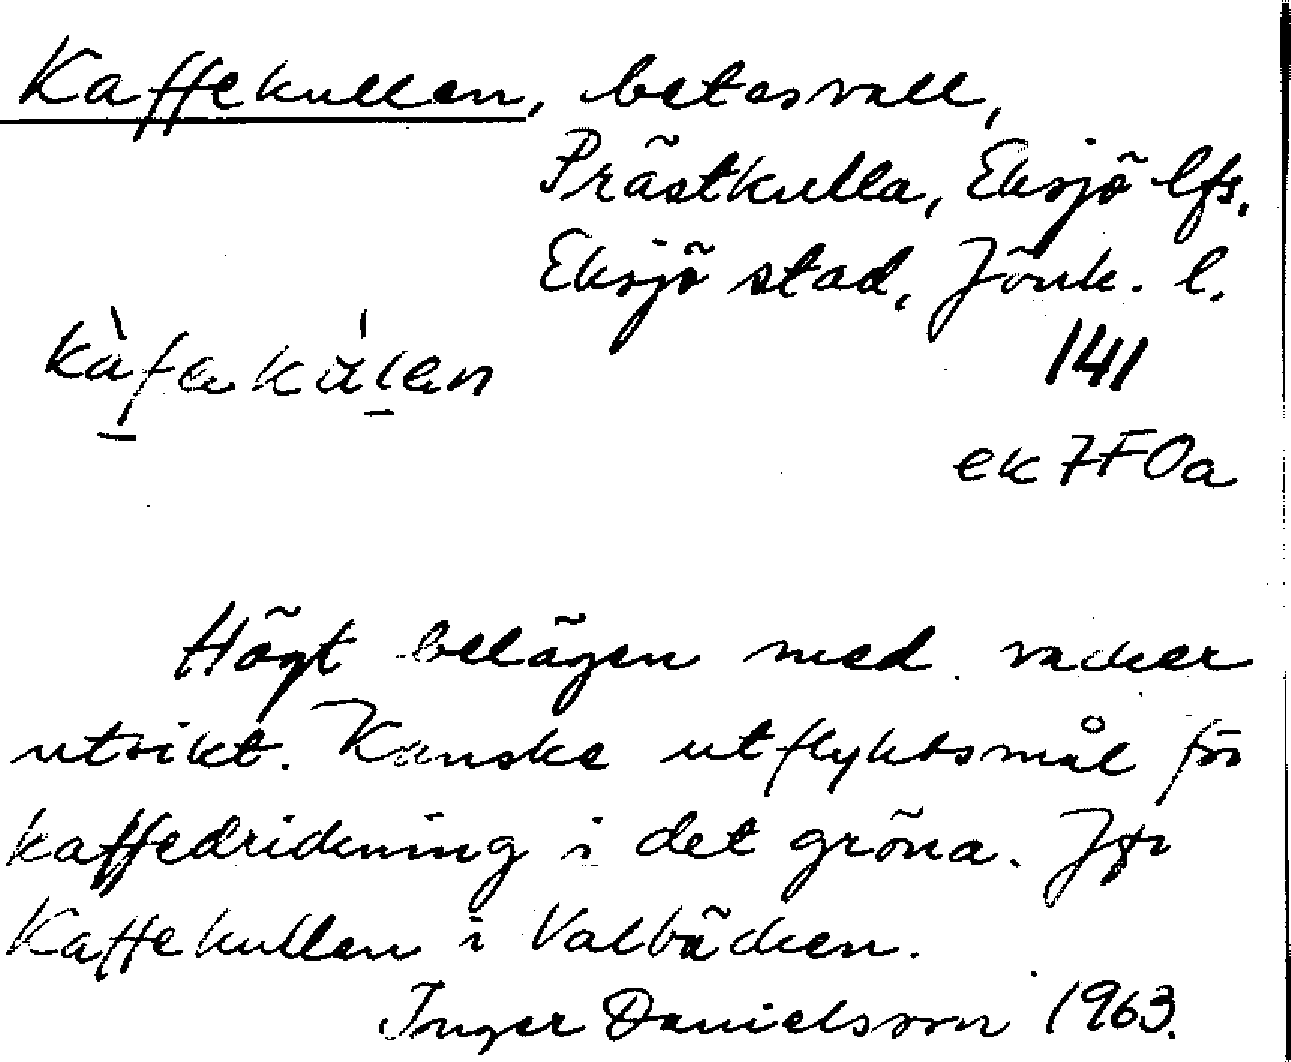 Kaffekullen, betesvall,
Prästkulla, Eksjö lfs.
Eksjö stad, Jönk. l.
141
ek 7F0a
Högt belägen med vacker
utsikt. Kanske utflyktsmål för
kaffedrickning i det gröna. Jfr
Kaffekullen i Valbäcken.
Inger Danielsson 1963.